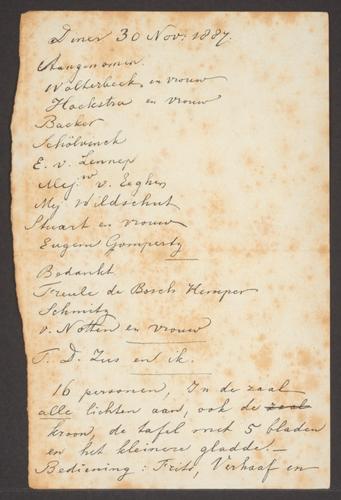 Diner 30 Nov: 1887.
Aangenomen.
Walterbeek en vrouw
Hoekstra en vrouw
Backer
Schölvinck
E. v. Lennep
Mej.w v. Eeghen
Mej Wildschut
Stuart en vrouw
Eugene Gompertz
Bedankt
Freule de Bosch Kemper
Schmitz
v. Notten en vrouw
T. D. Zus en ik.
16 personen, In de zaal
alle lichten aan, ook de zaal
kroon, de tafel met 5 bladen
en het kleinere gladde. —
Bediening: Frits, Verhaaf en